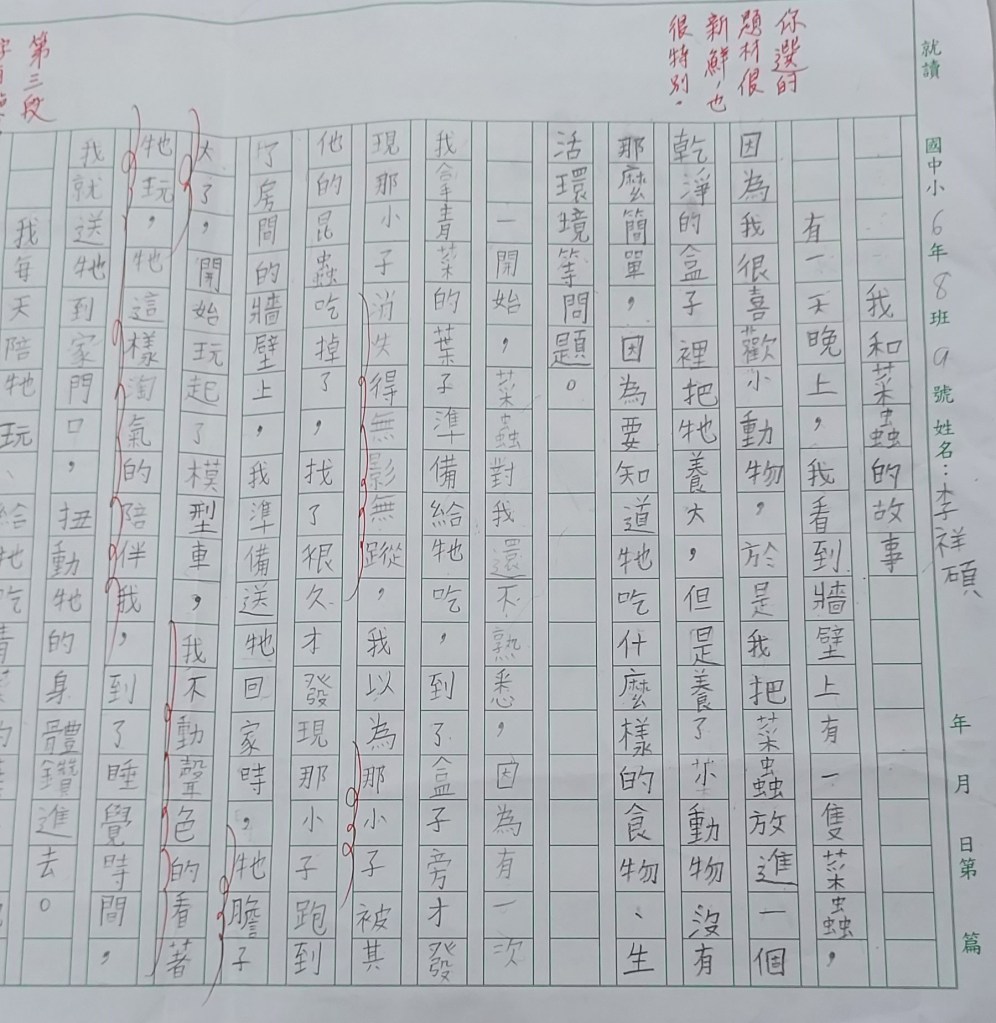 就讀 國中小 6年8班9號 姓名：李祥碩 年 月 日第 篇
你選的
題材很
新鮮，也
很特別。
第三段
我和菜蟲的故事
有一天晚上，我看到牆壁上有一隻菜蟲，
因為我很喜歡小動物，於是我把菜蟲放進一個
乾淨的盒子裡把牠養大，但是養了小動物沒有
那麼簡單，因為要知道牠吃什麼樣的食物、生
活環境等問題。
一開始，菜蟲對我還不熟悉，因為有一次
我拿青菜的葉子準備給牠吃，到了盒子旁才發
現那小子消失得無影無蹤，我以為那小子被其
他的昆蟲吃掉了，找了很久才發現那小子跑到
了房間的牆壁上，我準備送牠回家時，牠膽子
大了，開始玩起了模型車，我不動聲色的看著
牠玩，牠這樣淘氣的陪伴我，到了睡覺時間，
我就送牠到家門口，扭動牠的身體鑽進去。
我每天陪牠玩、給牠吃青